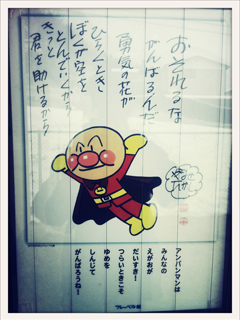 おそれるな
がんばるんだ
勇気の花が
ひらくとき
ぼくが空を
とんでいくから
きっと
君を助けるから
アンパンマンは
みんなの
えがおが
だいすき！
つらいときこそ
ゆめを
しんじて
がんばろうね！
フレーベル館